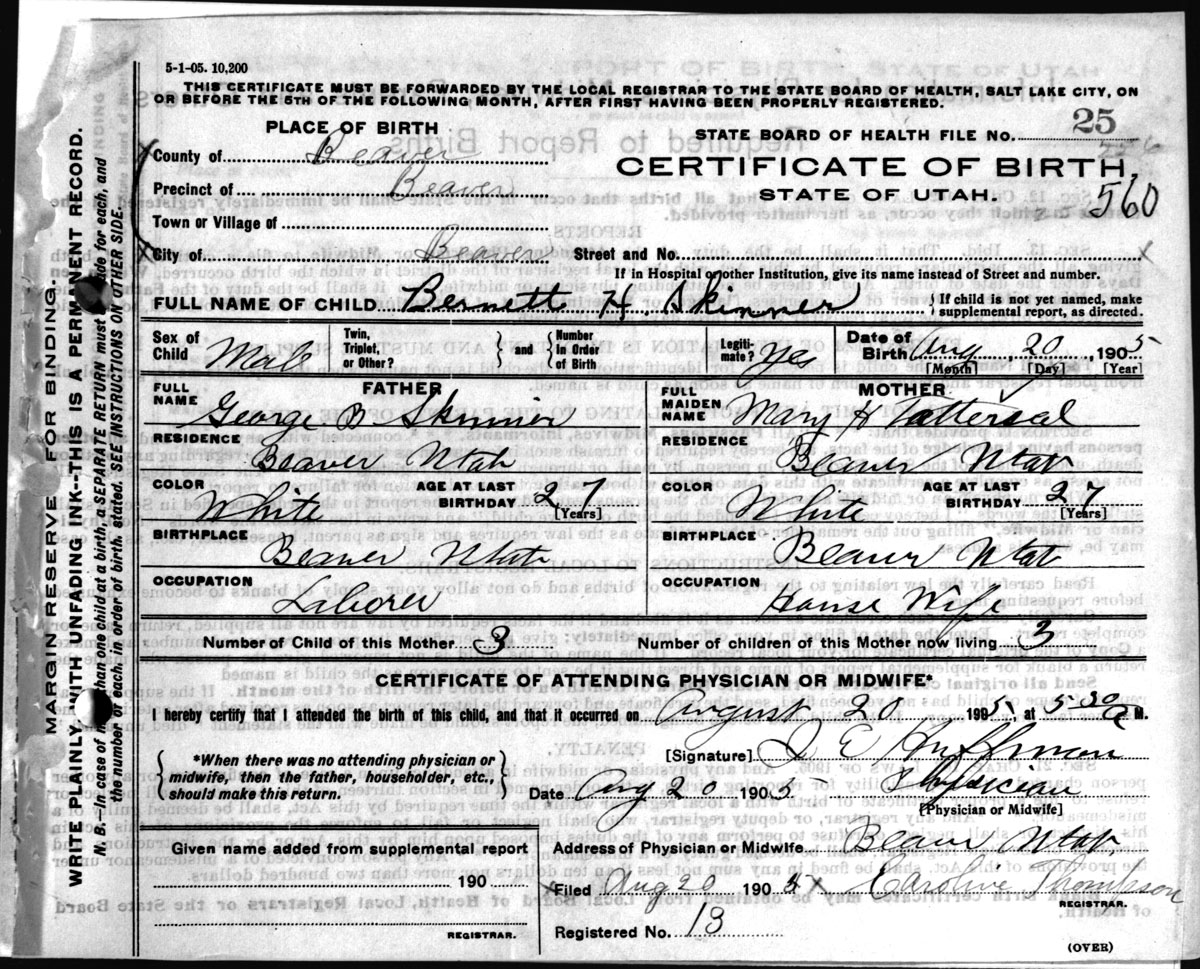 5-1-05. 10,200
THIS CERTIFICATE MUST BE FORWARDED BY THE LOCAL REGISTRAR TO THE STATE BOARD OF HEALTH, SALT LAKE CITY, ON
OR BEFORE THE 5TH OF THE FOLLOWING MONTH, AFTER FIRST HAVING BEEN PROPERLY REGISTERED.
PLACE OF BIRTH
STATE BOARD OF HEALTH FILE NO. 25
County of Beaver
CERTIFICATE OF BIRTH,
Precinct of Beaver
STATE OF UTAH.
560
Town or Village of
City of Beaver Street and No.
If in Hospital or other Institution, give its name instead of Street and number.
FULL NAME OF CHILD Bernett H. Skinner { If child is not yet named, make supplemental report, as directed.
Sex of Child Male Twin, Triplet, or Other? } and { Number in Order of Birth Legitimate? Yes Date of Birth Aug 20, 1905
[Month] [Day] [Year]
FATHER
FULL NAME George B Skinner
RESIDENCE
Beaver Utah
COLOR White AGE AT LAST BIRTHDAY 27 [Years]
BIRTHPLACE
Beaver Utah
OCCUPATION
Laborer
MOTHER
FULL MAIDEN NAME Mary H Tattersal
RESIDENCE
Beaver Utah
COLOR White AGE AT LAST BIRTHDAY 27 [Years]
BIRTHPLACE
Beaver Utah
OCCUPATION
House Wife
Number of Child of this Mother 3 Number of children of this Mother now living 3
CERTIFICATE OF ATTENDING PHYSICIAN OR MIDWIFE*
I hereby certify that I attended the birth of this child, and that it occurred on August 20 1905, at 5-30 A M.
{ *When there was no attending physician or
midwife, then the father, householder, etc.,
should make this return. }
[Signature] J E Huffman
Date Aug 20 1905 Physician
[Physician or Midwife]
Given name added from supplemental report
190
REGISTRAR.
Address of Physician or Midwife Beaver Utah
Filed Aug 20 1905 Caroline Thompson
REGISTRAR.
Registered No. 13
(OVER)
MARGIN RESERVE FOR BINDING.
WRITE PLAINLY, WITH UNFADING INK--THIS IS A PERMANENT RECORD.
N. B.--In case of more than one child at a birth, a SEPARATE RETURN must be made for each, and
the number of each, in order of birth, stated. SEE INSTRUCTIONS ON OTHER SIDE.